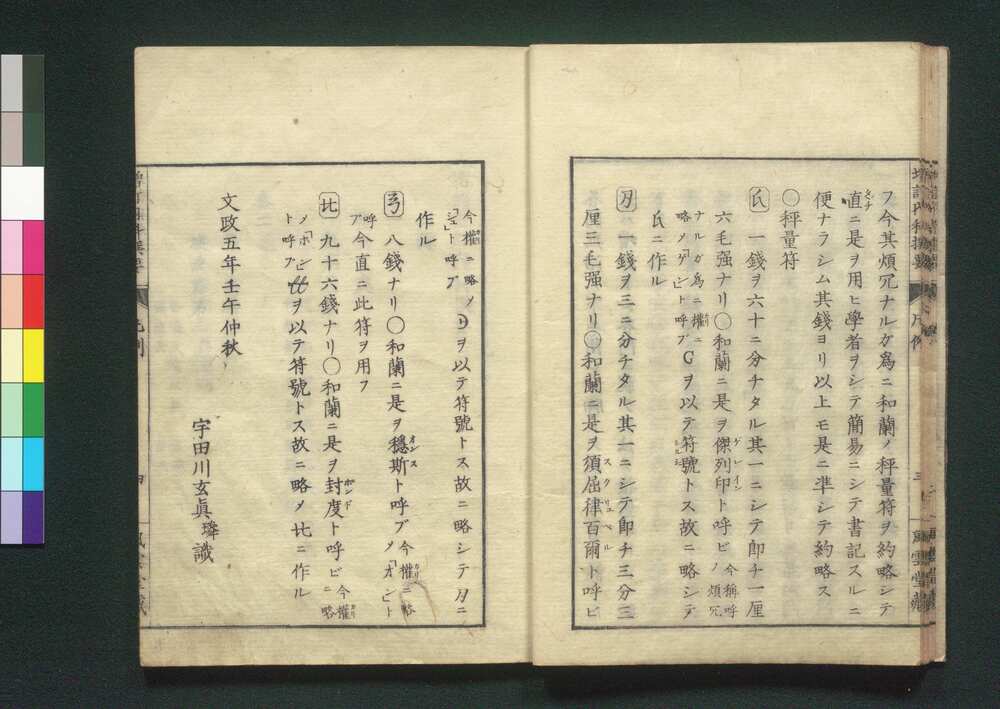 フ今其煩冗ナルガ爲ニ和蘭ノ秤量符ヲ約略シテ
直ニ是ヲ用ヒ學者ヲシテ簡易ニシテ書記スルニ
便ナラシム其錢ヨリ以上モ是ニ準シテ約略ス
〇秤量符
氏 一錢ヲ六十ニ分チタル其一ニシテ卽チ一厘
六毛强ナリ〇和蘭ニ是ヲ傑列印ト呼ビ今稱呼ノ煩冗
ナルガ爲ニ權ニ略メ「ゲ」ト呼ブGヲ以テ符號トス故ニ略シテ
氏ニ作ル
刃 一錢ヲ三ニ分チタル其一ニシテ卽チ三分三
厘三毛强ナリ〇和蘭ニ是ヲ須屈律百爾ト呼ビ
今權ニ略メ「シュ」ト呼ブ ヲ以テ符號トス故ニ略シテ刃ニ
作ル
弓 八錢ナリ〇和蘭ニ是ヲ穩斯ト呼ブ今權ニ略メ「オ」ト
呼ブ今直ニ此符ヲ用フ
比 九十六錢ナリ〇和蘭ニ是ヲ封度ト呼ビ今權ニ略
メ「ポ」ト呼ブ ヲ以テ符號トス故ニ略メ比ニ作ル
文政五年壬午仲秋
宇田川玄眞璘識